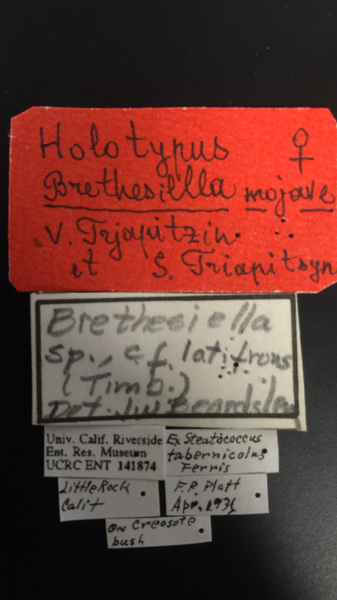 Holotypus ♀
Brethesiella mojave
V. Trjapitzin
et S. Triapitsyn
Brethesiella
sp., cf. latifrons
(Timb.)
Det. J.W. Beardsley
Univ. Calif. Riverside
Ent. Res. Museum
UCRC ENT 141874
Ex Steatococcus
tabernicolus
Ferris
LittleRock
Calif
F.P. Platt
Apr. 1931
On Creosote
bush